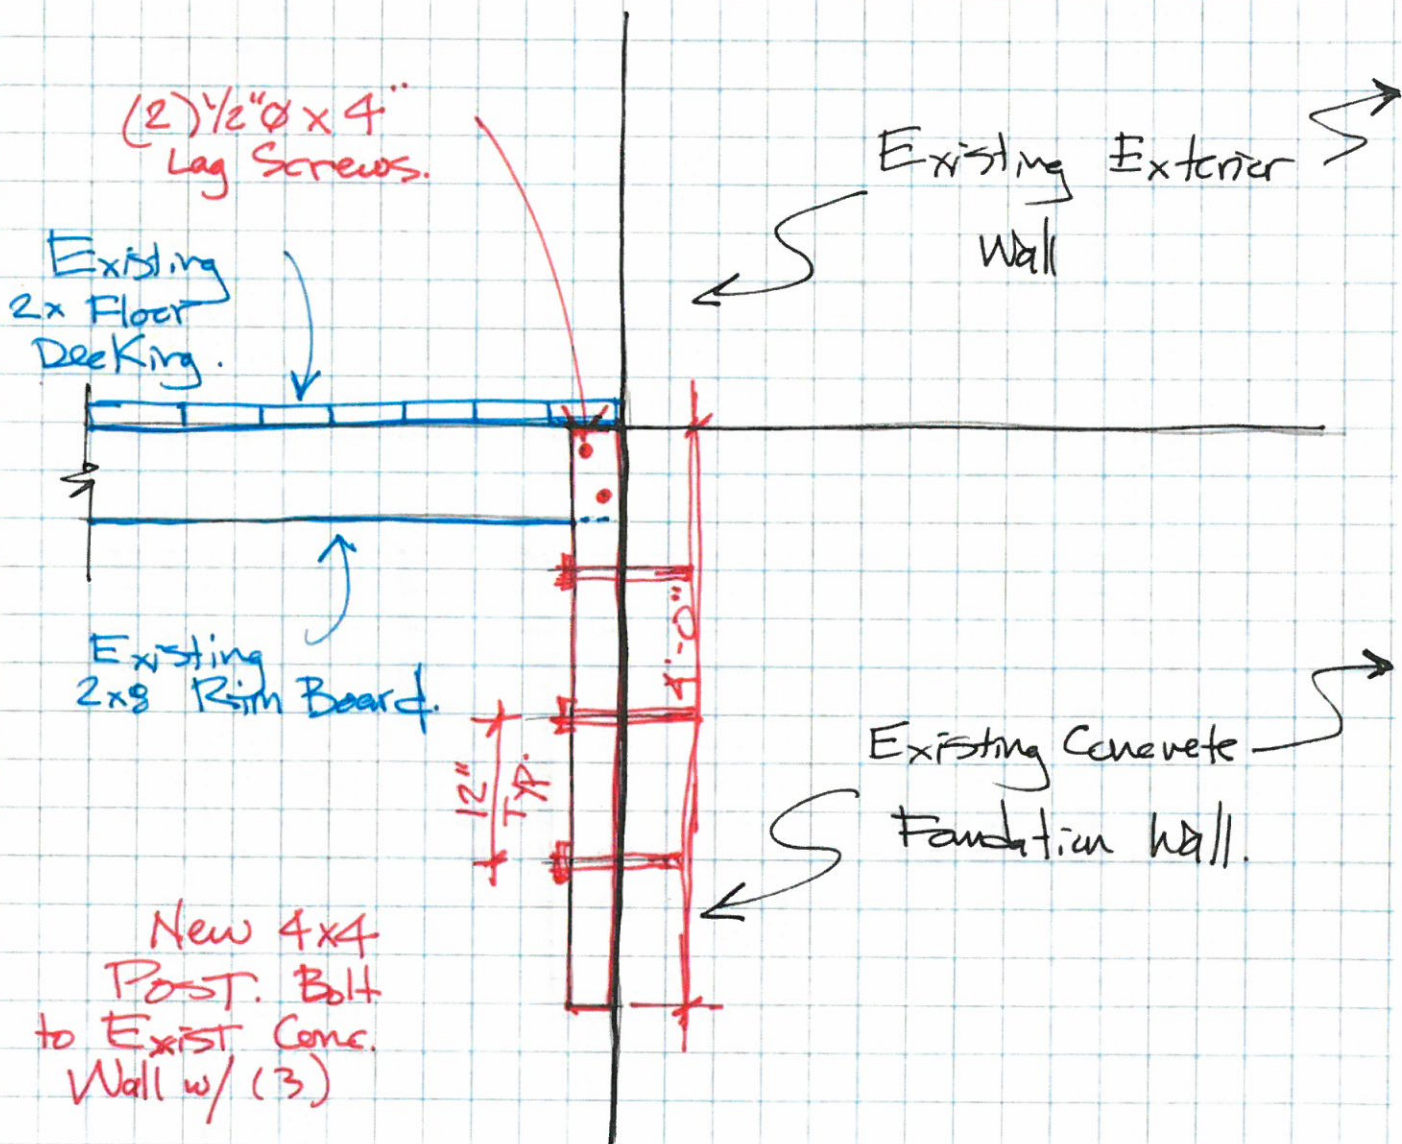 (2) 1/2"Ø x 4"
Lag Screws.
Existing Exterior
Wall
Existing
2x Floor
Decking.
4'-0"
Existing
2x8 Rim Board.
12"
Typ.
Existing Concrete
Foundation Wall.
New 4x4
Post. Bolt
to Exist Conc.
Wall w/ (3)